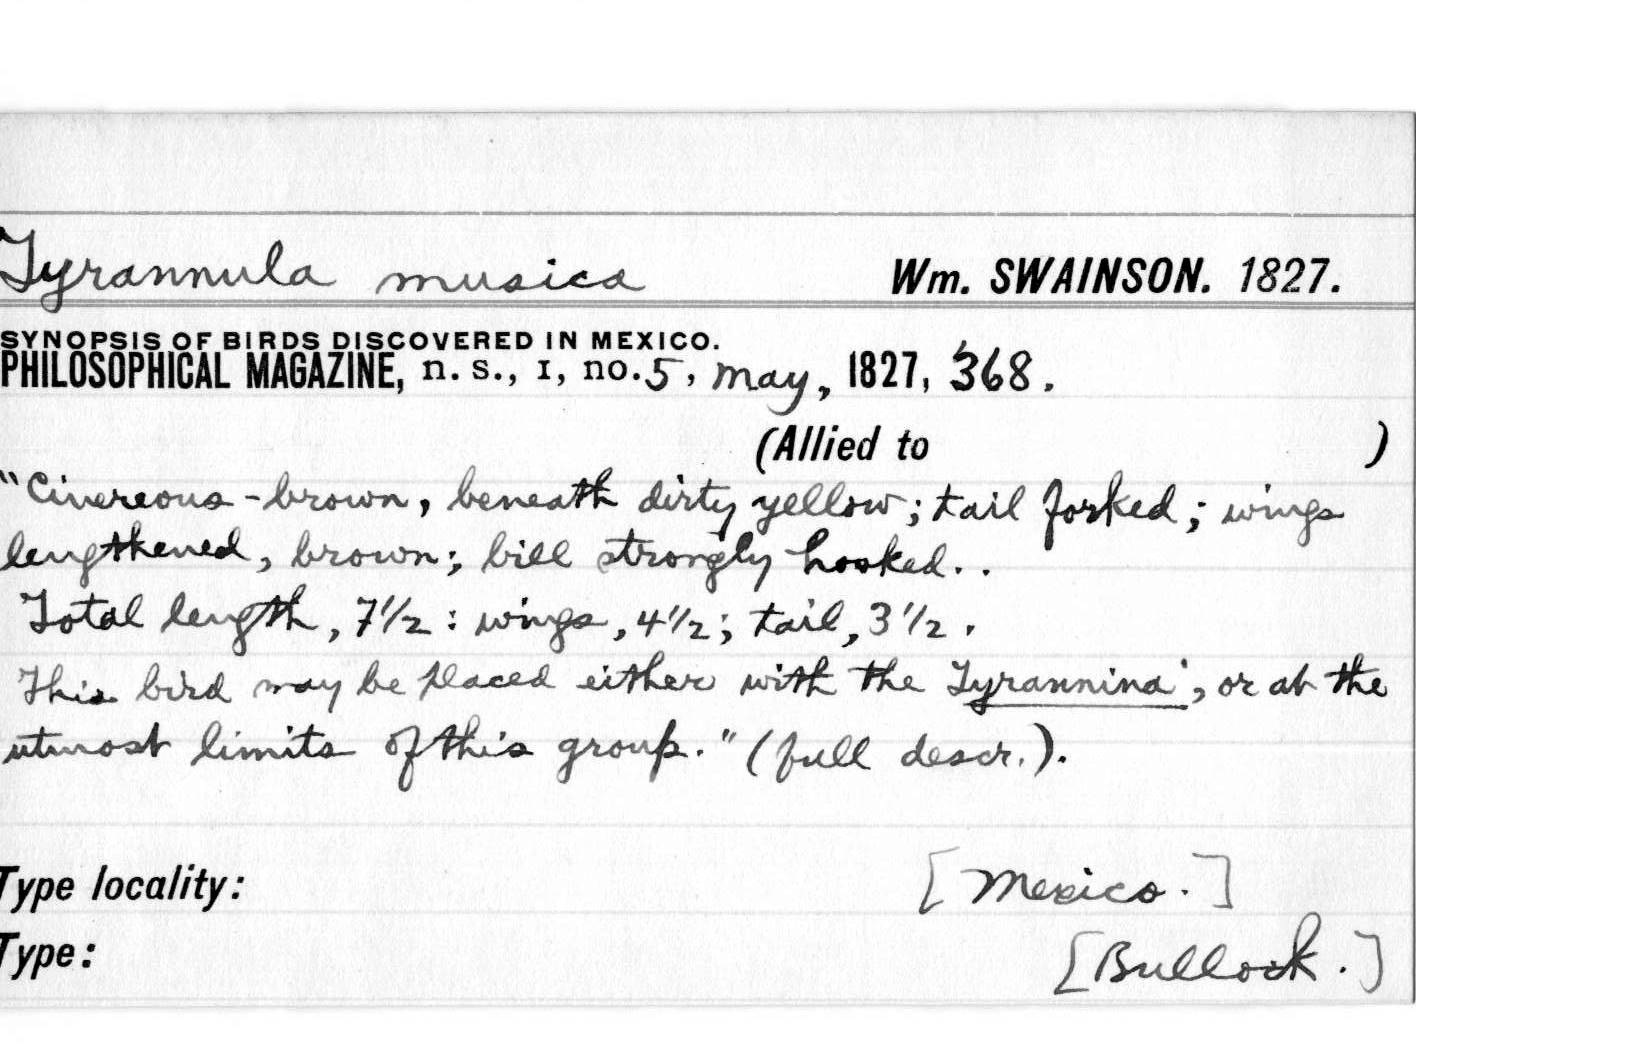 Tyrannula musica Wm. SWAINSON. 1827.
SYNOPSIS OF BIRDS DISCOVERED IN MEXICO.
PHILOSOPHICAL MAGAZINE, n. s., I, no. 5, May, 1827, 368.
(Allied to )
"Cinereous-brown, beneath dirty yellow; tail forked; wings
lengthened, brown; bill strongly hooked..
Total length, 7 1/2: wings, 4 1/2; tail, 3 1/2.
This bird may be placed either with the Tyrannina', or at the
utmost limits of this group." (full descr.).
Type locality: [Mexico.]
Type: [Bullock.]